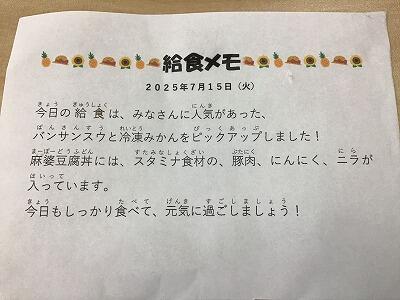 給食メモ
2025年7月15日（火）
今日の給食は、みなさんに人気があった、
バンサンスウと冷凍みかんをピックアップしました！
麻婆豆腐丼には、スタミナ食材の、豚肉、にんにく、ニラが
入っています。
今日もしっかり食べて、元気に過ごしましょう！